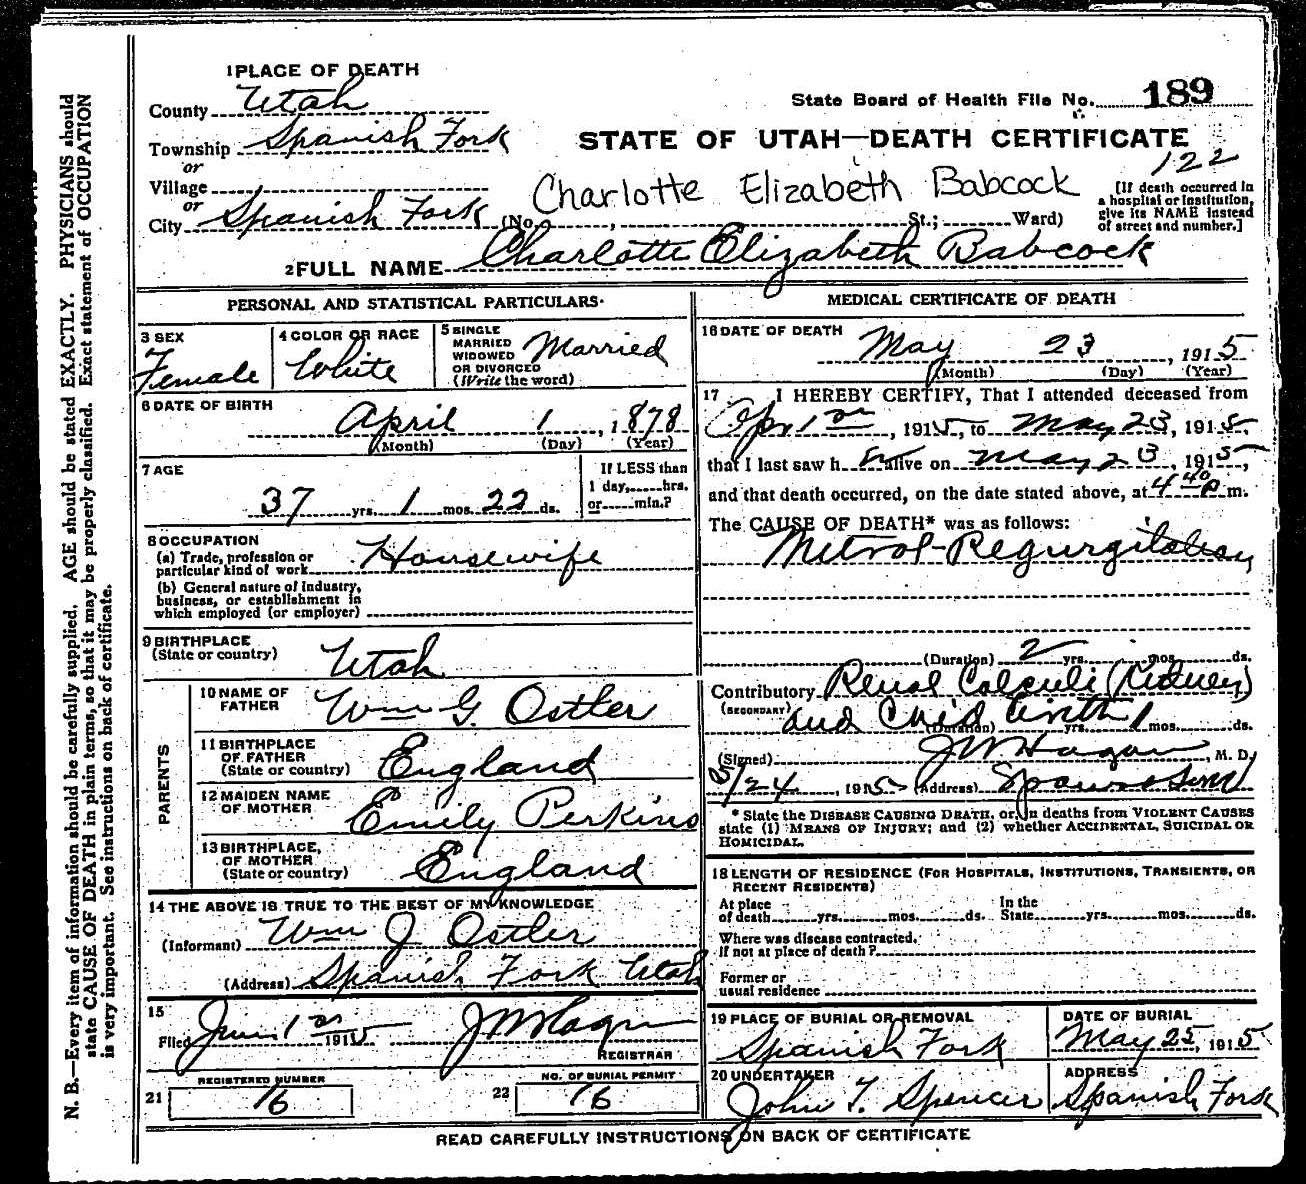 1 PLACE OF DEATH
County Utah
State Board of Health File No. 189
Township Spanish Fork
STATE OF UTAH—DEATH CERTIFICATE
122
or
Village
or
City Spanish Fork (No. , St.; Ward)
Charlotte Elizabeth Babcock
[If death occurred in
a hospital or institution,
give its NAME instead
of street and number.]
2 FULL NAME Charlotte Elizabeth Babcock
PERSONAL AND STATISTICAL PARTICULARS.
3 SEX
Female
4 COLOR OR RACE
White
5 SINGLE
MARRIED
WIDOWED
OR DIVORCED
(Write the word)
Married
6 DATE OF BIRTH
April 1, 1878
(Month) (Day) (Year)
7 AGE
37 yrs. 1 mos. 22 ds.
If LESS than
1 day, hrs.
or min.?
8 OCCUPATION
(a) Trade, profession or
particular kind of work Housewife
(b) General nature of industry,
business, or establishment in
which employed (or employer)
9 BIRTHPLACE
(State or country)
Utah
PARENTS
10 NAME OF
FATHER
Wm G. Ostler
11 BIRTHPLACE
OF FATHER
(State or country)
England
12 MAIDEN NAME
OF MOTHER
Emily Perkins
13 BIRTHPLACE,
OF MOTHER
(State or country)
England
14 THE ABOVE IS TRUE TO THE BEST OF MY KNOWLEDGE
(Informant) Wm J Ostler
(Address) Spanish Fork Utah
15
Filed 1915 J W Hagan
REGISTRAR
REGISTERED NUMBER
21 16
NO. OF BURIAL PERMIT
22 16
MEDICAL CERTIFICATE OF DEATH
16 DATE OF DEATH
May 23, 1915
(Month) (Day) (Year)
17 I HEREBY CERTIFY, That I attended deceased from
Apr 1st, 1915, to May 23, 1915,
that I last saw her alive on May 23, 1915,
and that death occurred, on the date stated above, at 4 40 P m.
The CAUSE OF DEATH* was as follows:
Mitrol-Regurgitation
(Duration) 2 yrs. mos. ds.
Contributory Renal Calculi (Kidney)
(SECONDARY) and Child birth
(Duration) yrs. 1 mos. ds.
(Signed) J W Hagan, M. D.
5/24, 1915 (Address)
* State the DISEASE CAUSING DEATH, or, in deaths from VIOLENT CAUSES
state (1) MEANS OF INJURY; and (2) whether ACCIDENTAL, SUICIDAL OR
HOMICIDAL.
18 LENGTH OF RESIDENCE (FOR HOSPITALS, INSTITUTIONS, TRANSIENTS, OR
RECENT RESIDENTS)
At place
of death yrs. mos. ds.
In the
State yrs. mos. ds.
Where was disease contracted,
if not at place of death?
Former or
usual residence
19 PLACE OF BURIAL OR REMOVAL
Spanish Fork
DATE OF BURIAL
May 25, 1915
20 UNDERTAKER
John T. Spencer
ADDRESS
Spanish Fork
READ CAREFULLY INSTRUCTIONS ON BACK OF CERTIFICATE
N. B.—Every item of information should be carefully supplied. AGE should be stated EXACTLY. PHYSICIANS should
state CAUSE OF DEATH in plain terms, so that it may be properly classified. Exact statement of OCCUPATION
is very important. See instructions on back of certificate.